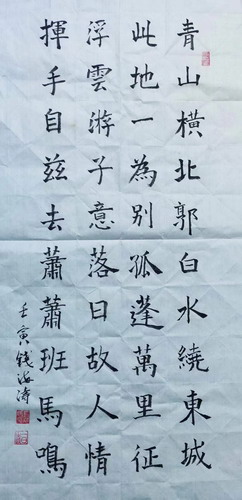 青山橫北郭白水繞東城
此地一為別孤蓬萬里征
浮雲游子意落日故人情
揮手自茲去蕭蕭班馬鳴
壬寅錢海濤